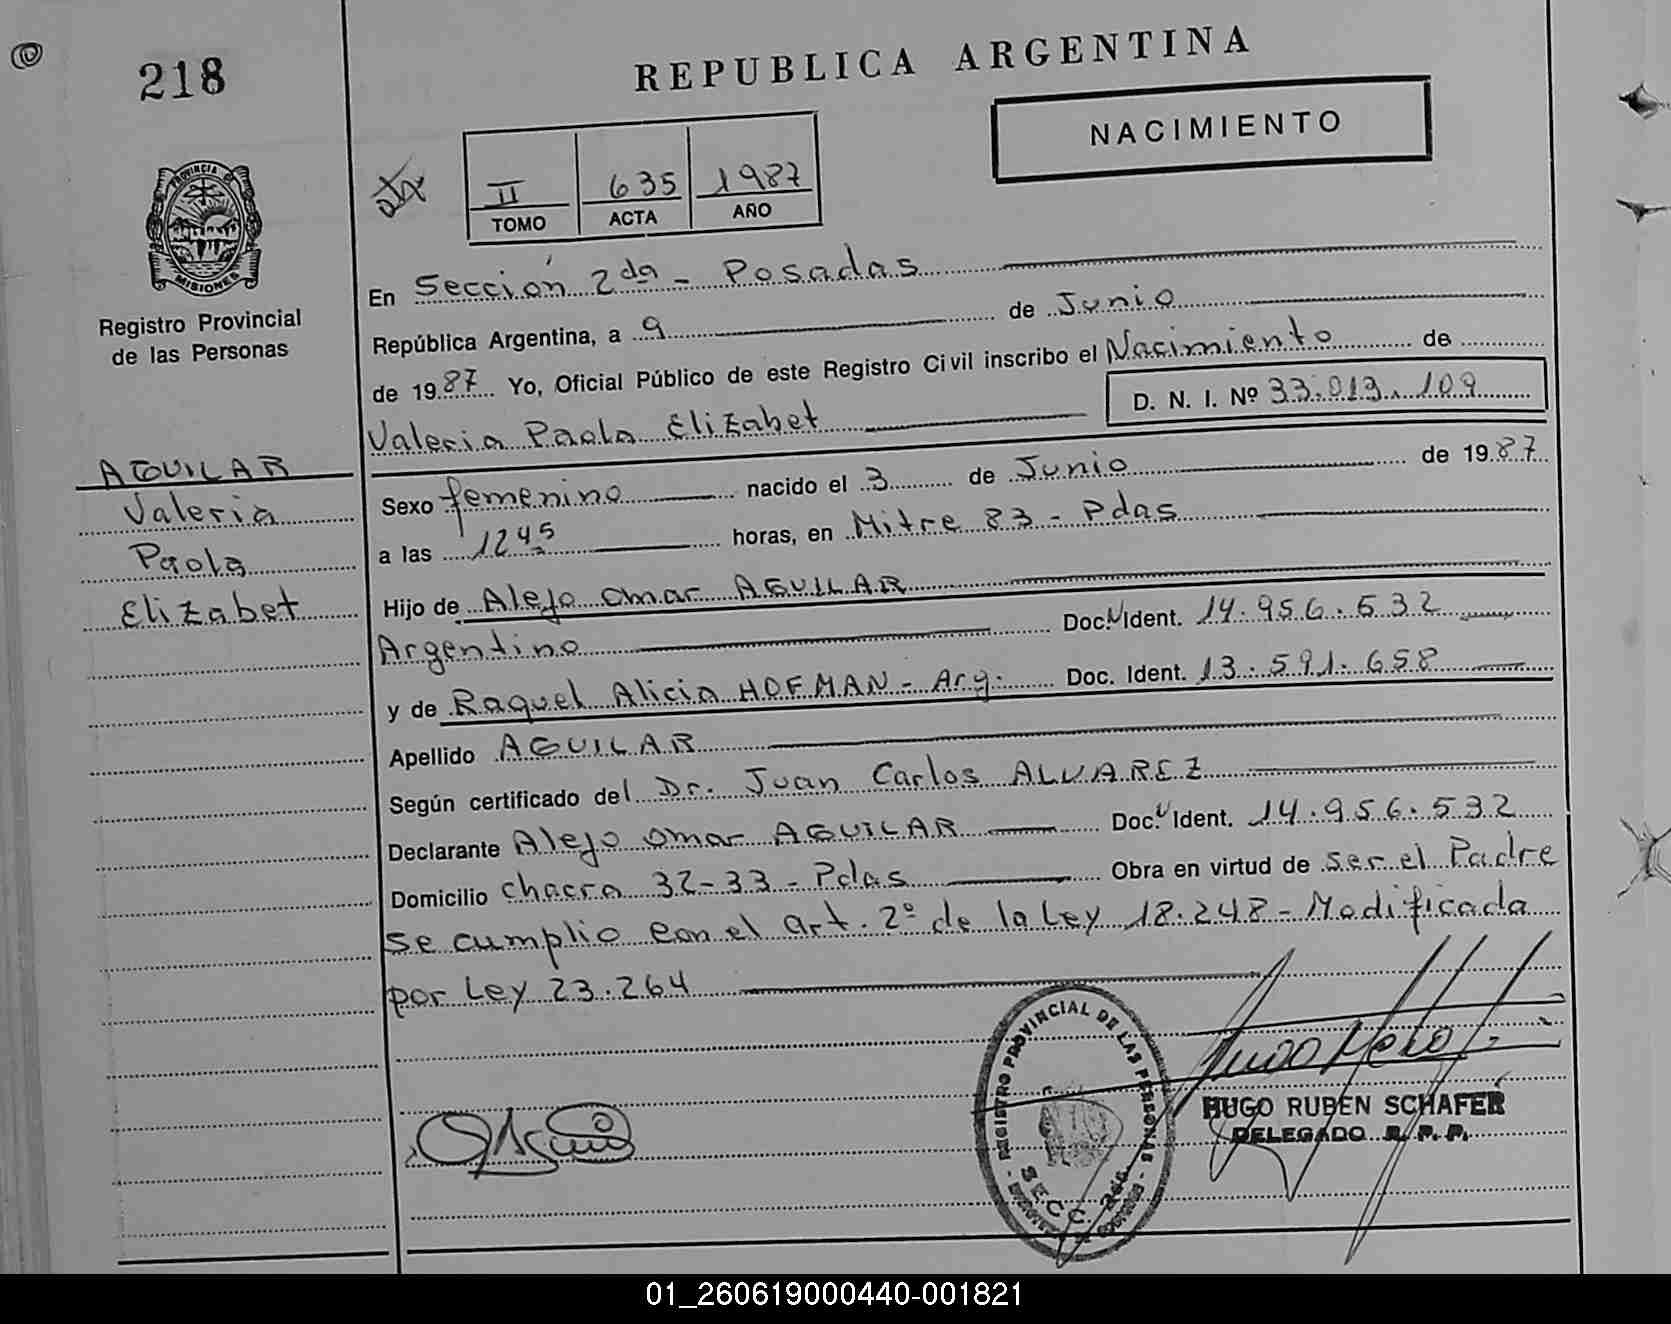 218
REPUBLICA ARGENTINA
NACIMIENTO
II 635 1987
TOMO ACTA AÑO
PROVINCIA DE
MISIONES
Registro Provincial
de las Personas
En Sección 2da - Posadas
República Argentina, a 9 de Junio
de 1987 Yo, Oficial Público de este Registro Civil inscribo el Nacimiento de
D. N. I. Nº 33.013.109
Valeria Paola Elizabet
AGUILAR
Valeria
Paola
Elizabet
Sexo femenino nacido el 3 de Junio de 1987
a las 1245 horas, en Mitre 83 - Pdas
Hijo de Alejo Omar AGUILAR
Argentino Doc. Ident. 14.956.532
y de Raquel Alicia HOFMAN - Arg. Doc. Ident. 13.591.658
Apellido AGUILAR
Según certificado del Dr. Juan Carlos ALVAREZ
Declarante Alejo Omar AGUILAR Doc. Ident. 14.956.532
Domicilio chacra 32-33 - Pdas Obra en virtud de ser el Padre
se cumplio con el art. 2º de la Ley 18.248 - Modificada
por Ley 23.264
REGISTRO PROVINCIAL DE LAS PERSONAS
SECC.
HUGO RUBEN SCHAFER
DELEGADO R. P. P.
01_260619000440-001821